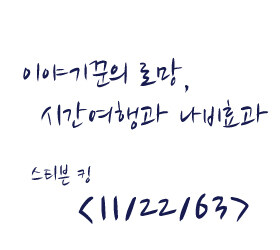 이야기꾼의 로망,
시간여행과 나비효과
스티븐 킹
<11/22/63>